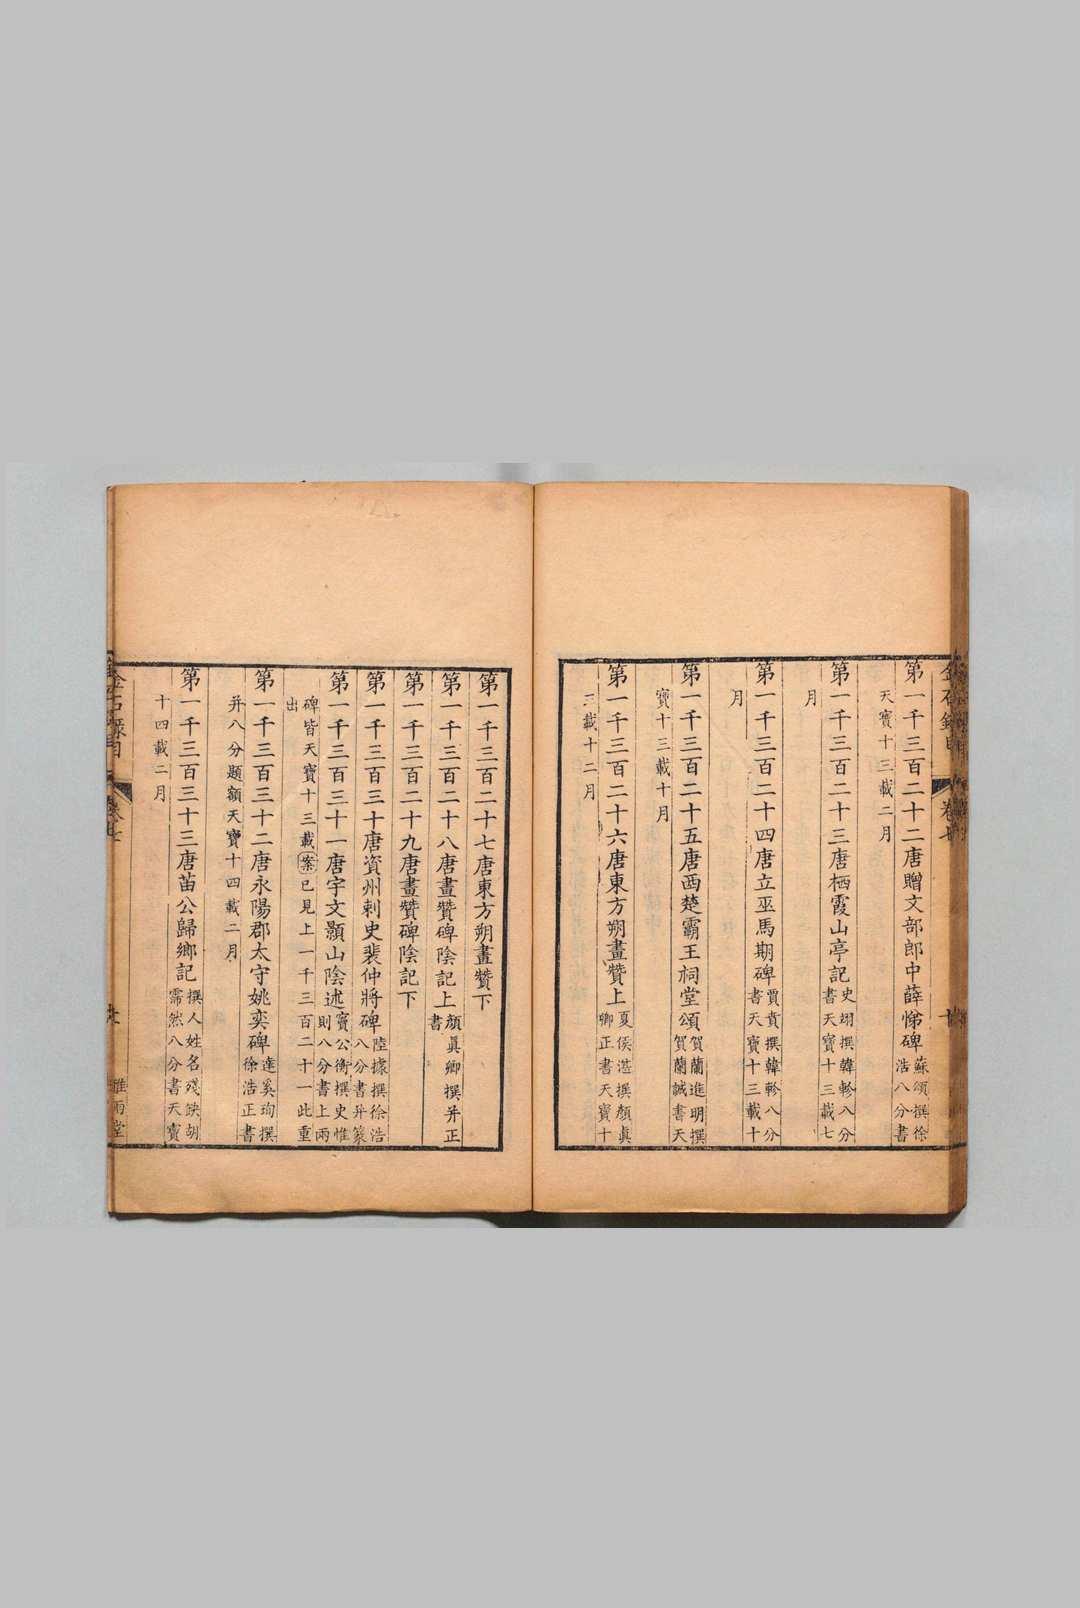 金石錄目 卷七
第一千三百二十二唐贈文部郎中薛悌碑蘇頌撰徐浩八分書
天寶十三載二月
第一千三百二十三唐栖霞山亭記史翙撰韓軫八分書天寶十三載七
月
第一千三百二十四唐立巫馬期碑賈賁撰韓軫八分書天寶十三載十
月
第一千三百二十五唐西楚霸王祠堂頌賀蘭進明撰賀蘭誠書天
寶十三載十月
第一千三百二十六唐東方朔畫贊上夏侯湛撰顏眞卿正書天寶十
三載十二月
第一千三百二十七唐東方朔畫贊下
第一千三百二十八唐畫贊碑陰記上顏眞卿撰幷正書
第一千三百二十九唐畫贊碑陰記下
第一千三百三十唐資州刺史裴仲將碑陸據撰徐浩八分書幷篆
第一千三百三十一唐宇文顥山陰述竇公衡撰史惟則八分書上兩
碑皆天寶十三載案已見上一千三百二十一此重
出
第一千三百三十二唐永陽郡太守姚奕碑達奚珣撰徐浩正書
幷八分題額天寶十四載二月
第一千三百三十三唐苗公歸鄉記撰人姓名殘缺胡霈然八分書天寶
十四載二月
金石錄目 卷七 雅雨堂